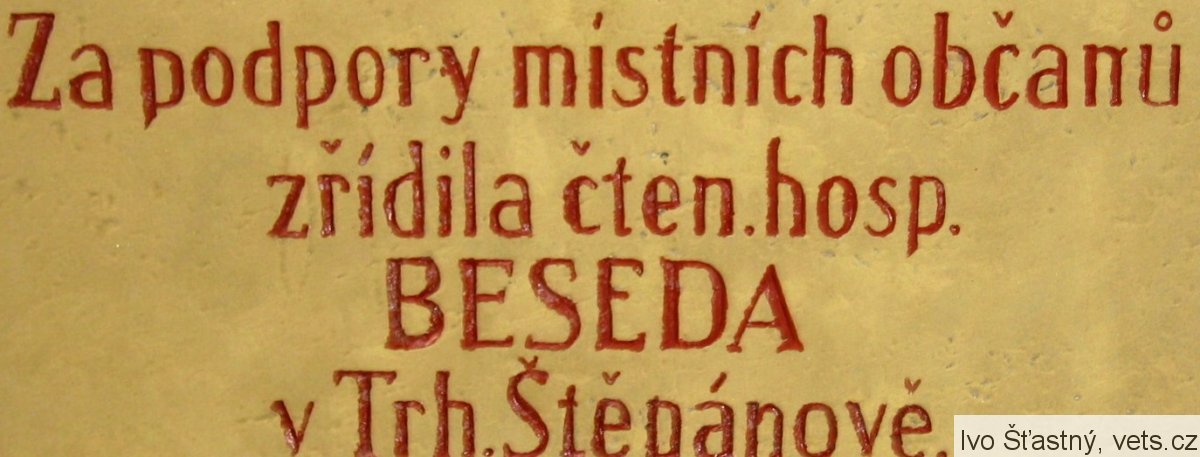 Za podpory místních občanů
zřídila čten. hosp.
BESEDA
v Trh. Štěpánově.
Ivo Šťastný, vets.cz